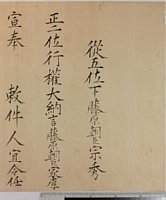 從五位下藤原朝臣宗秀
正二位行權大納言藤原朝臣家厚
宣奉　敕件人宜令任